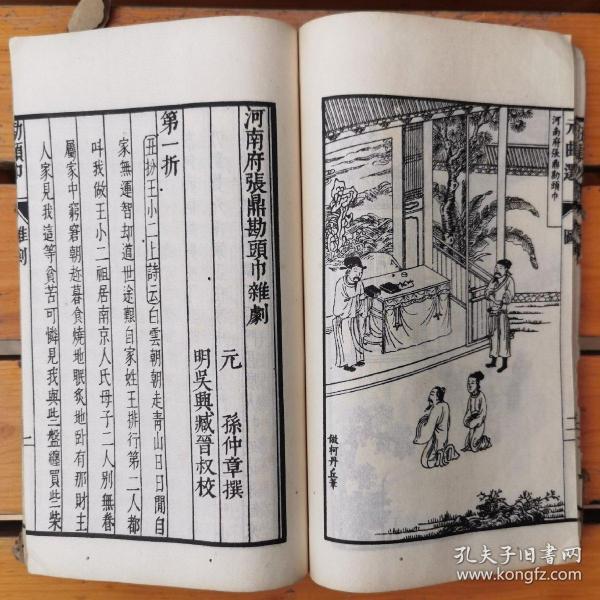 元曲選
圖
二
河南府張鼎勘頭巾
倣柯丹丘筆
河南府張鼎勘頭巾雜劇
元 孫仲章撰
明吳興臧晉叔校
第一折
丑扮王小二上詩云白雲朝朝走青山日日閒自
家無運智却道世途艱自家姓王排行第二人都
叫我做王小二祖居南京人氏母子二人別無眷
屬家中窮窘朝趂暮食燒地眠炙地卧有那財主
人家見我這等貧苦可憐見我與些盤纏買些柴
勘頭巾
雜劇
二
孔夫子旧书网
www.kongfz.com